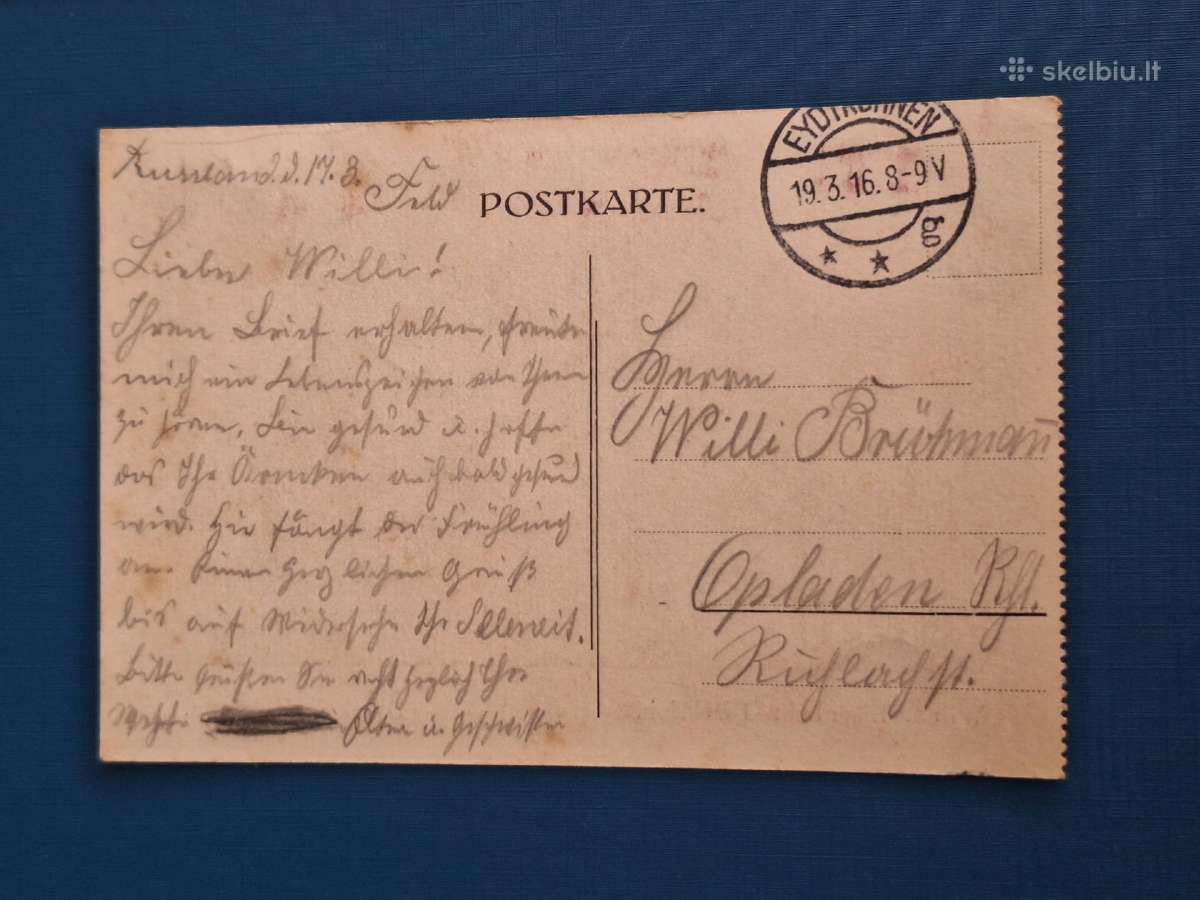 skelbiu.lt
EYDTKUHNEN
19.3.16.8-9V
* * b
POSTKARTE.
Russland. d. 17. 3.
Feld
Lieber Willi!
Ihren Brief erhalten, freute
mich ein Lebenszeichen von Ihnen
zu hören. Bin gesund u. hoffe
das Ihr auch bald gesund
wird. Hir fängt der Frühling
an. Einen herzlichen Gruß
bis auf Widersehn Ihr
Bitte grüßen Sie recht herzlich Ihre
Eltern u. Geschwister
Herrn
Willi Brühman
Opladen Rhl.
Ruhlachst.